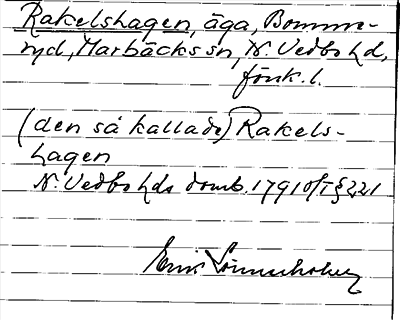 Rakelshagen, äga, Bomme-
ryd, Marbäcks sn, N. Vedbo hd,
fönk. l.
(den så kallade) Rakels-
hagen
N. Vedbo hds domb. 1791 0/T § 221
Erik